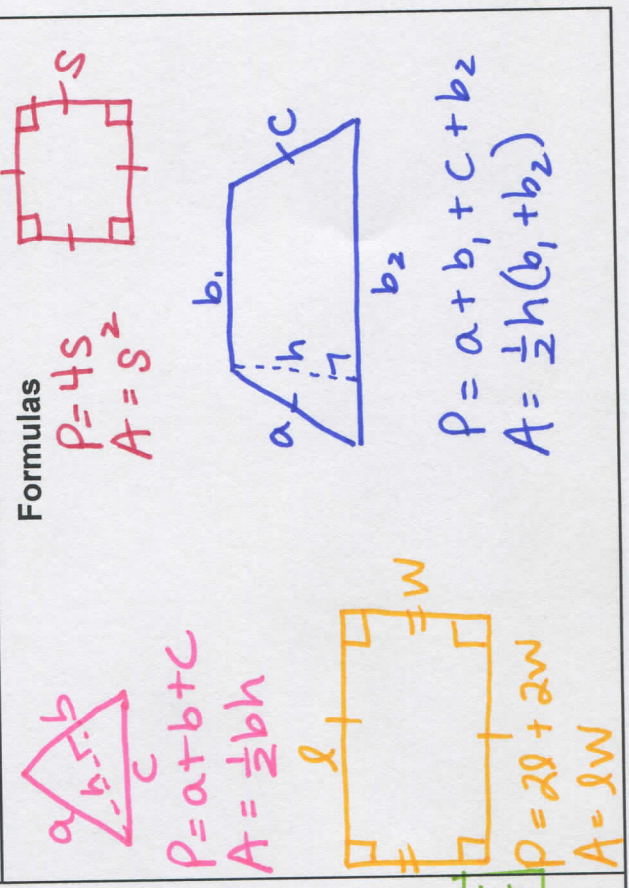 Formulas
a
b
h
c
P=a+b+c
A=½bh
P=4s
A=s²
s
l
w
P=2l+2w
A=lw
b₁
a
h
c
b₂
P=a+b₁+c+b₂
A=½h(b₁+b₂)